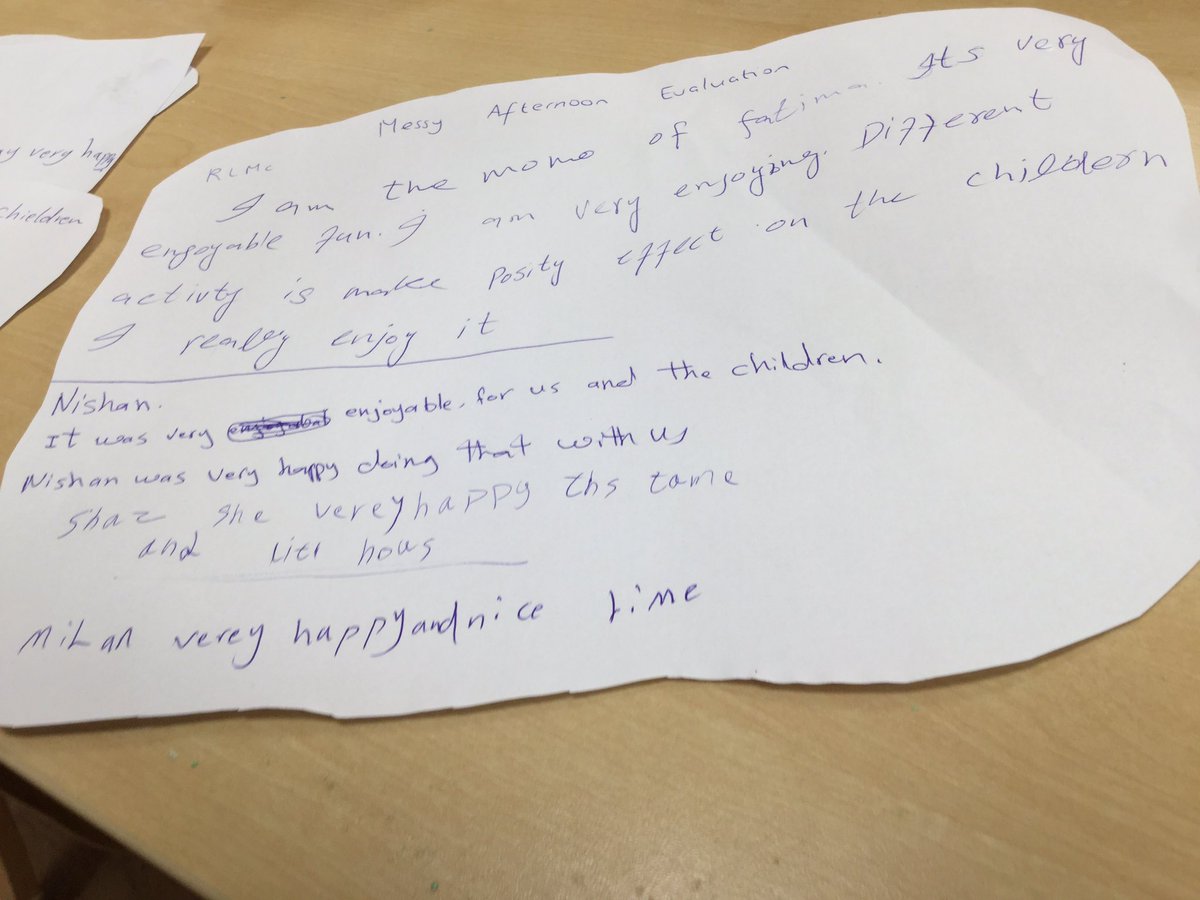 Messy Afternoon Evaluation
RLMC
I am the momo of fatima. Its very
enjoyable fun. I am very enjoying. Different
activty is make posity effect on the childern
I really enjoy it
Nishan.
It was very enjoyable. for us and the children.
Nishan was very happy doing that with us
Shaz she verey happy ths tame
and litl hous
Milan verey happy and nice time
very happy
chieldren